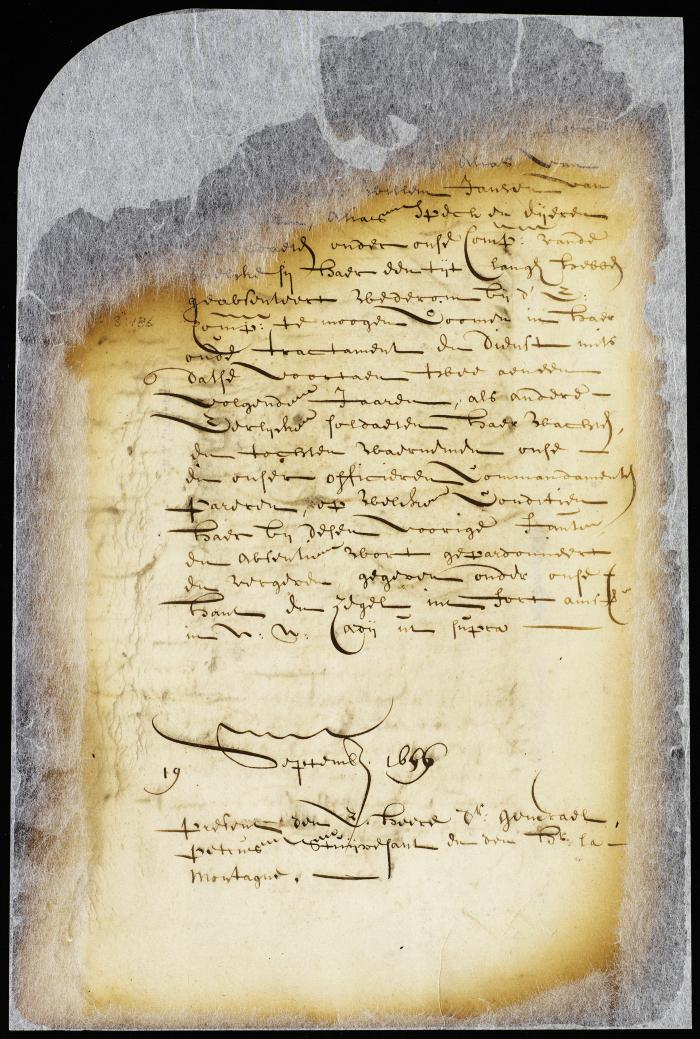 Alias van
willem Jansen van
, Alias Speck en dijeren
onder onse Comp: vande
sij haer een tijt langh hebben
geabsenteert wederom bij d' E:
Comp: te moogen Coomen in haer
oude tractament en dienst mits
datse voortaen twee aeneen
volgende Jaaren, als andere
Eerlijcke soldaeten haer wachten,
en tochten waernemen onse
en onser officieren Commandamenten
pareren, op welcke Conditien
haer bij desen voorige fauten
en absentie wort gepardonneert
en vergeven gegeven onder onse
hant en zegel int fort amst
in N: N: Adij ut supra
8:186
19 Septemb. 1656
Present den E. heere Dr: Generael,
Petrus Stuijvesant en den Hr. la
Montagne.